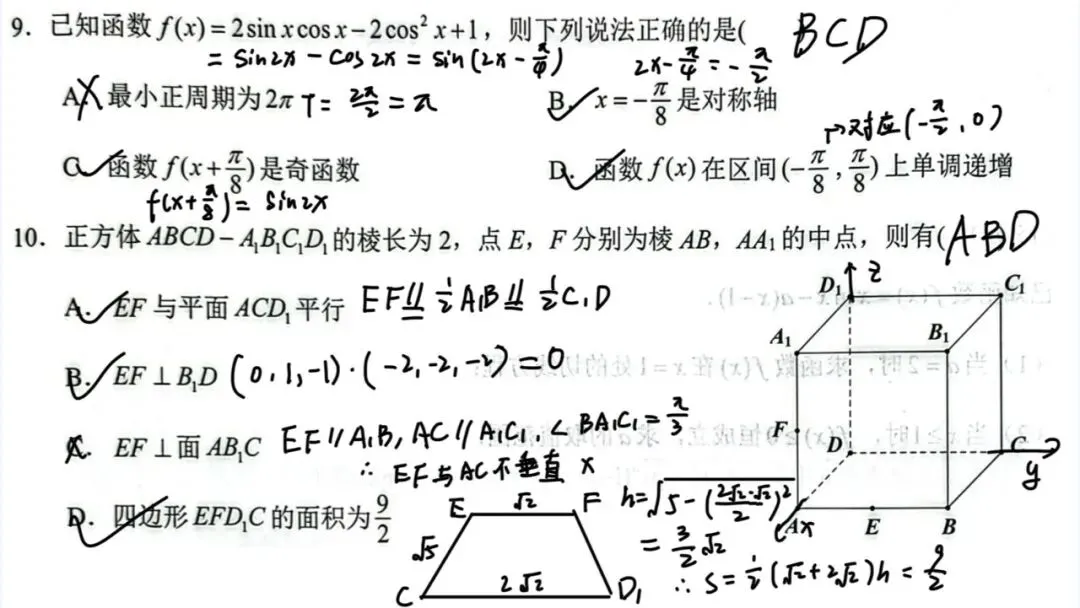 9. 已知函数 f(x)=2sin x cos x−2cos² x+1，则下列说法正确的是( BCD
= sin2x − cos2x = sin(2x − π/4) 2x−π/4=−π/2
A. 最小正周期为2π T= 2π/2 = π B. x=−π/8 是对称轴
→对应(−π/2, 0)
C. 函数 f(x+π/8) 是奇函数 D. 函数 f(x) 在区间(−π/8, π/8) 上单调递增
f(x+π/8)= sin2x
10. 正方体 ABCD−A₁B₁C₁D₁ 的棱长为 2，点 E，F 分别为棱 AB，AA₁ 的中点，则有( ABD
A. EF 与平面 ACD₁ 平行 EF∥ 1/2 A₁B ∥ 1/2 C₁D
B. EF⊥B₁D (0,1,−1)·(−2,−2,−2)=0
C. EF⊥面 AB₁C EF∥A₁B, AC∥A₁C₁, ∠BA₁C₁=π/3
∴ EF与AC不垂直 ×
D. 四边形 EFD₁C 的面积为 9/2
E √2 F
√5
C 2√2 D₁
h=√(5−((2√2−√2)/2)²)
= 3/2 √2
∴ S= 1/2 (√2+2√2)h = 9/2
D₁ z C₁
A₁ B₁
F
D C y
A x E B